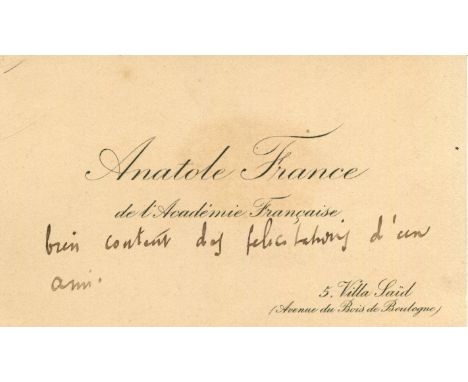 Anatole France
de l'Académie Française
bien content des felicitations d'un
ami.
5. Villa Saïd
(Avenue du Bois de Boulogne)